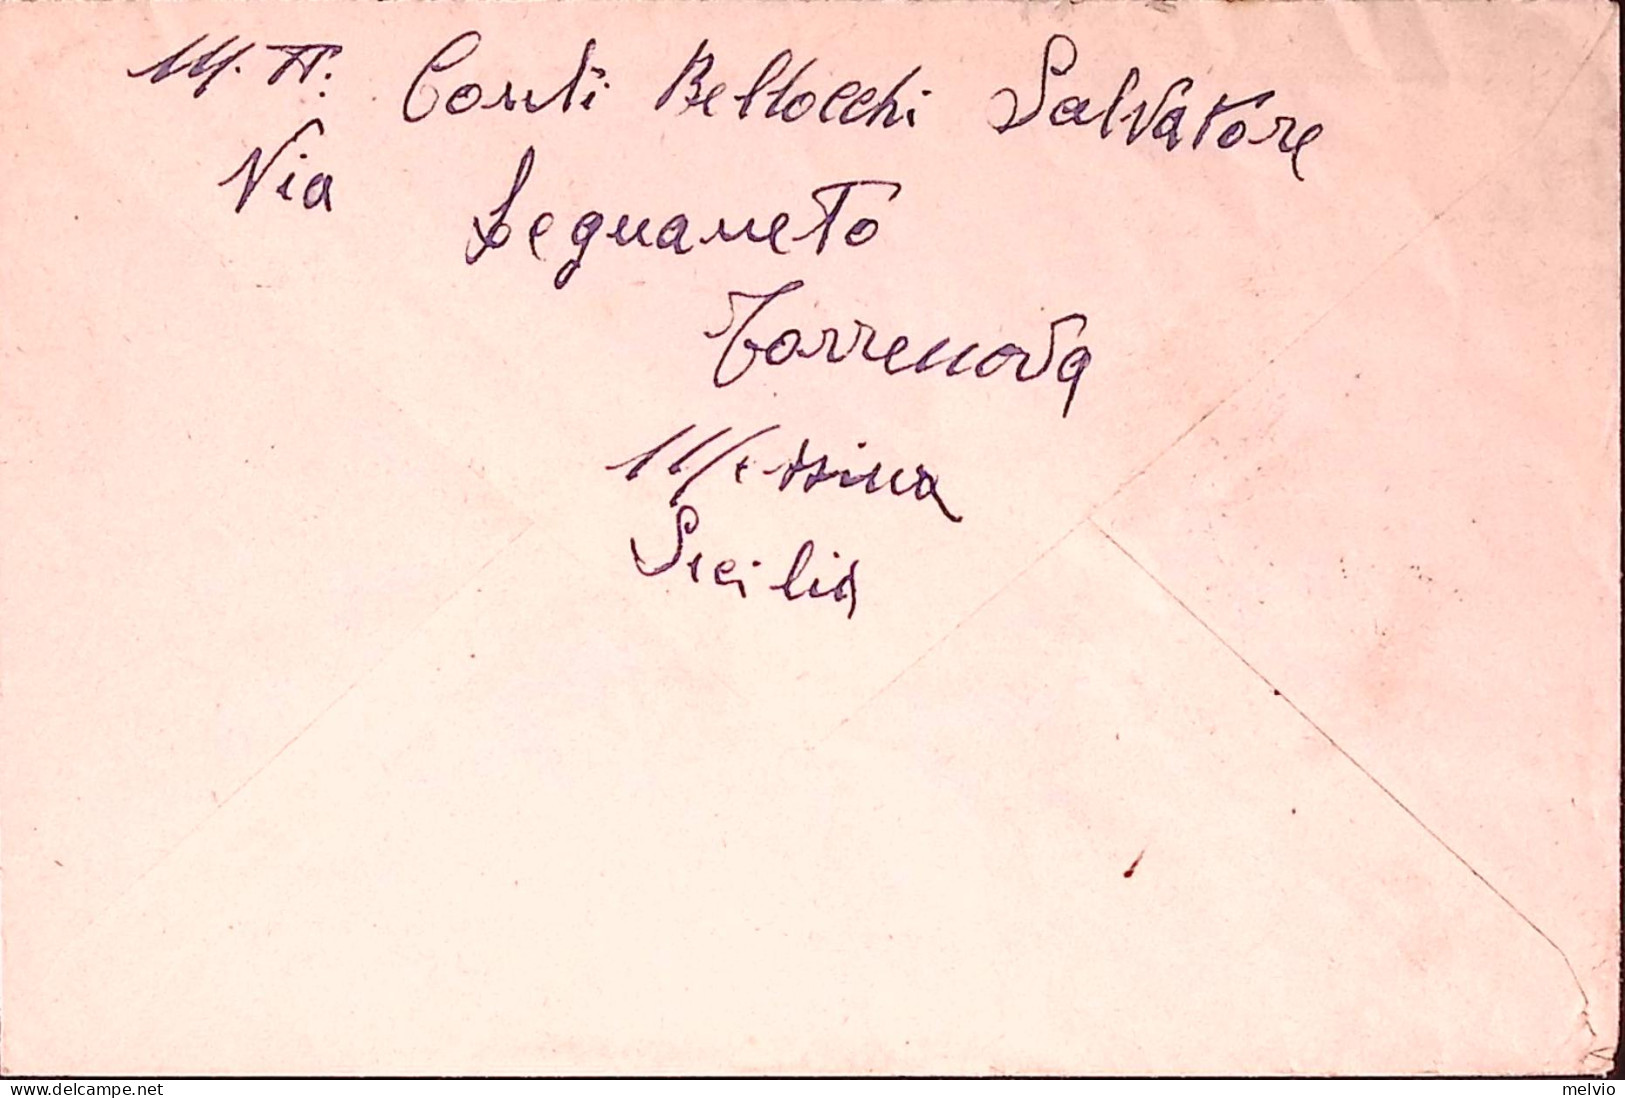 M.tt. Conti Bellocchi Salvatore
Via Legnaneto
Torrenova
Messina
Sicilia
delcampe.net
melvio